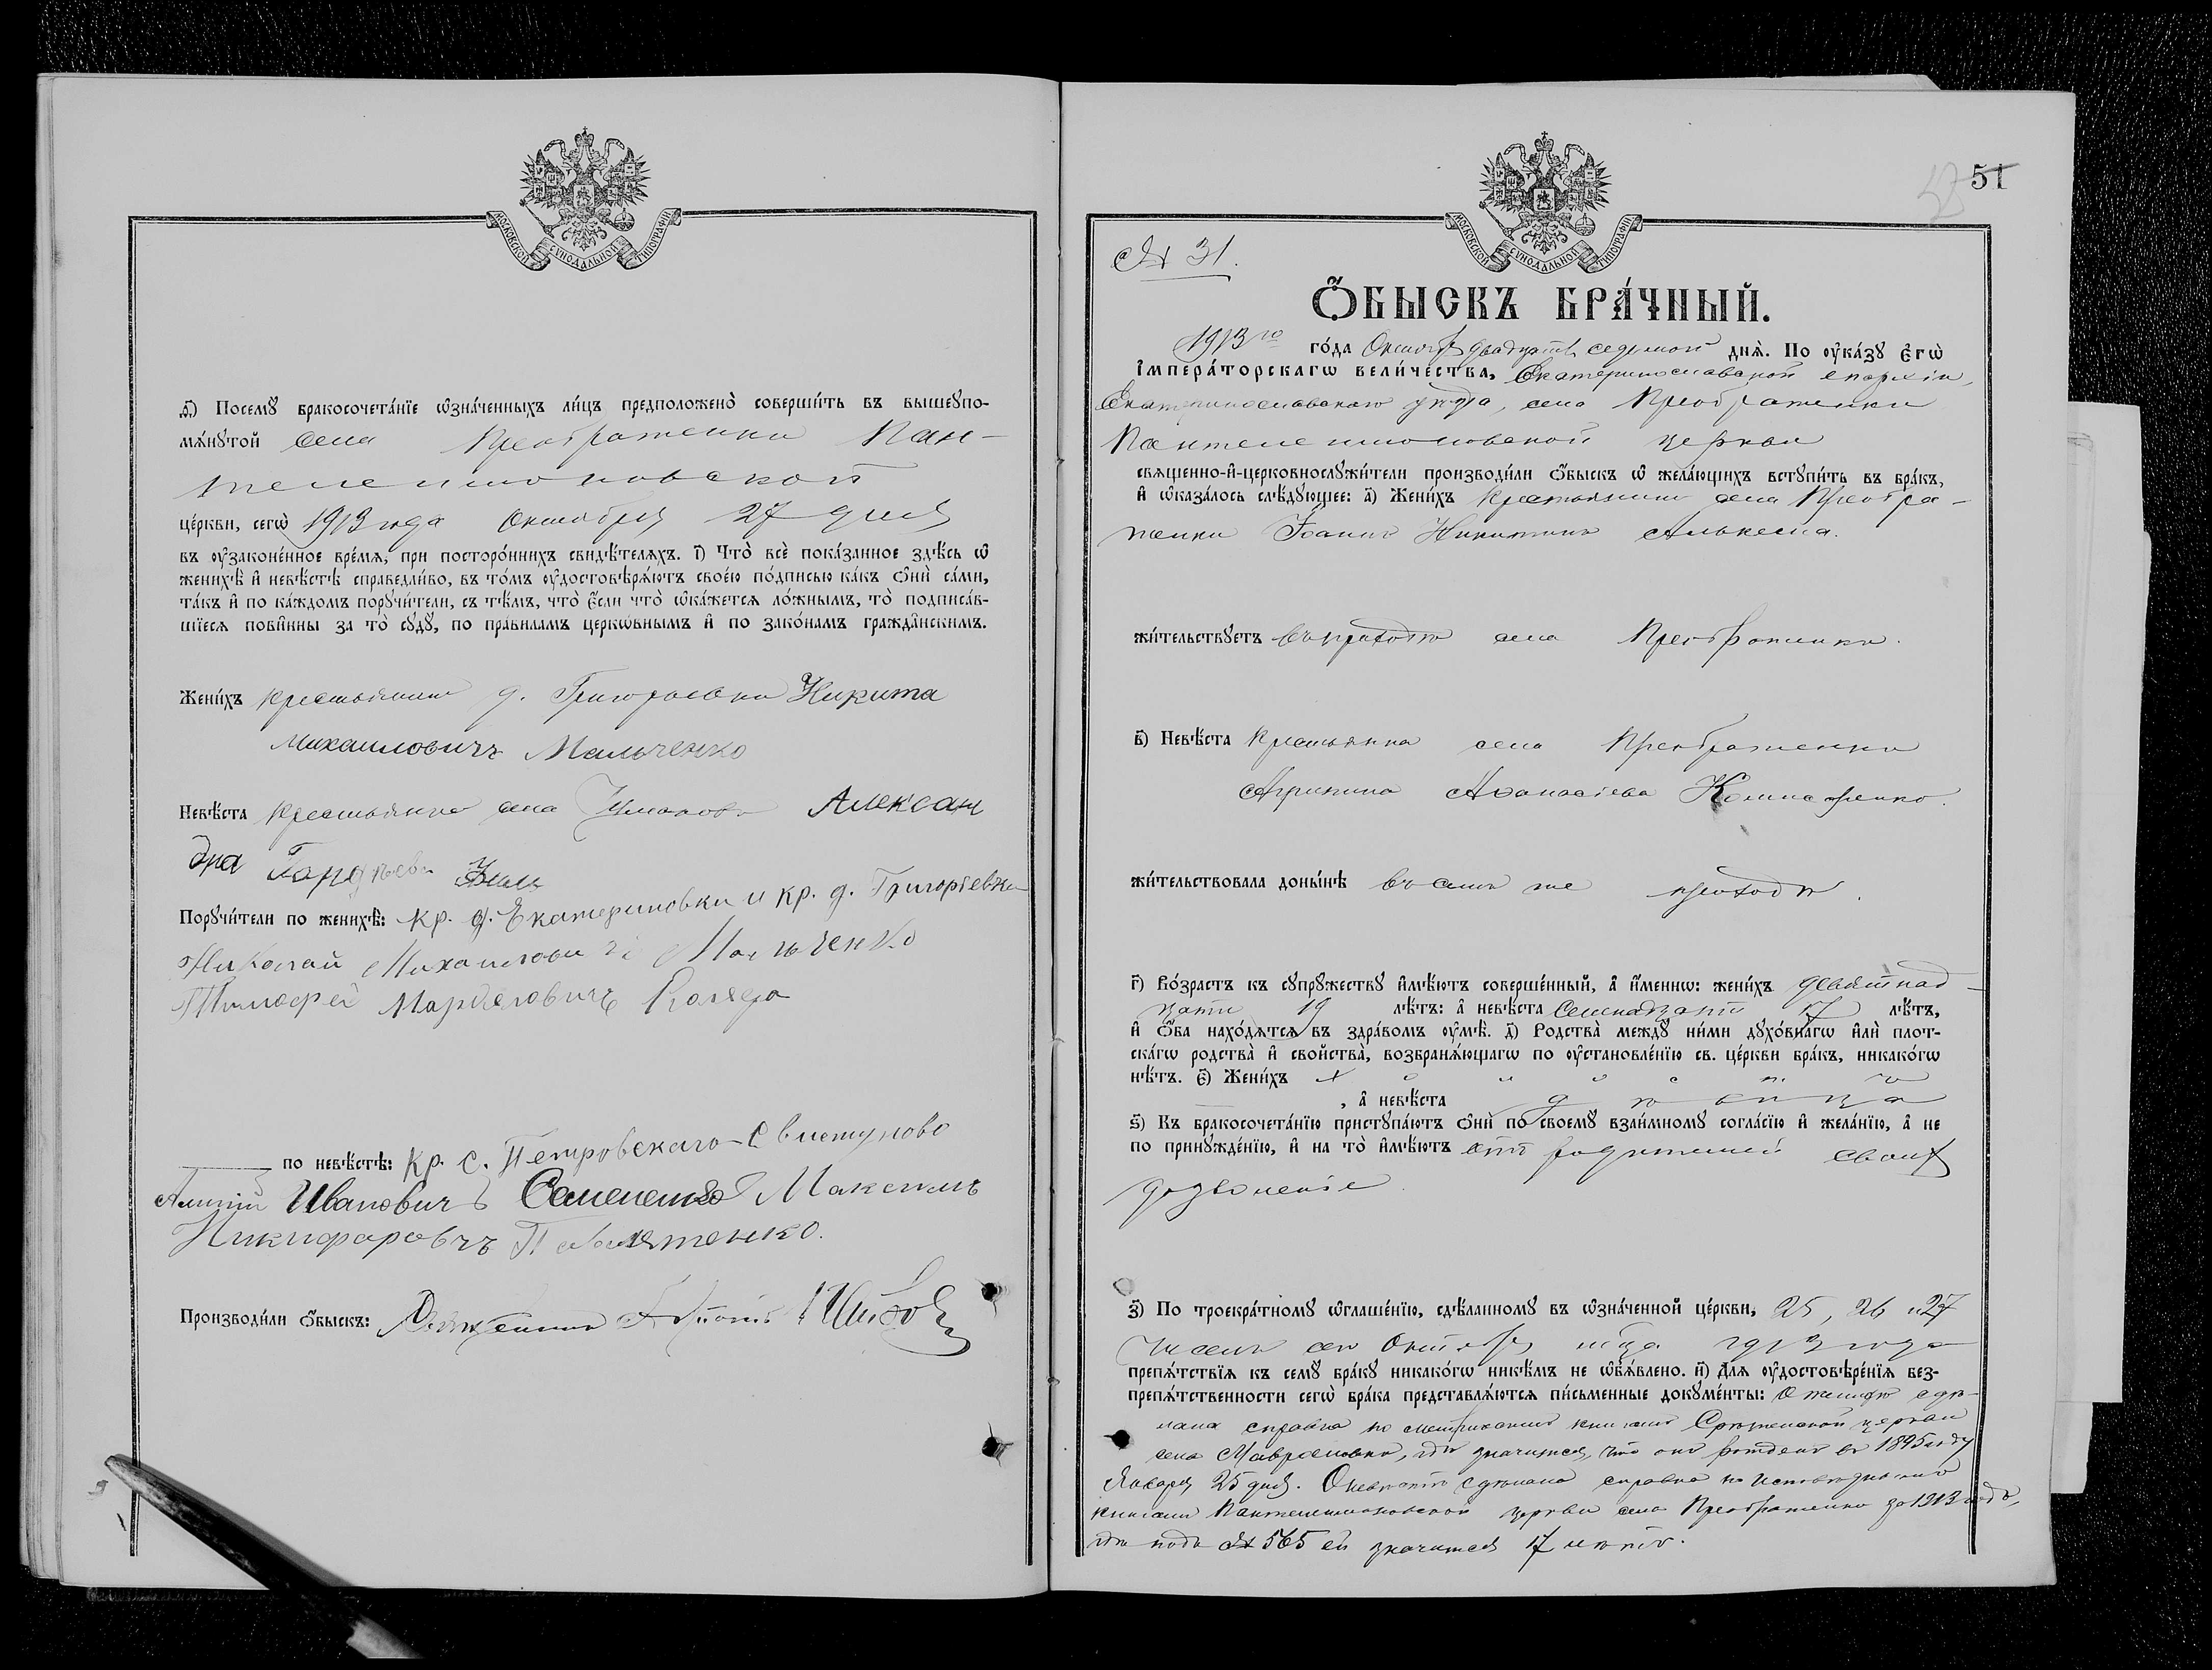 МОСКОВСКОЙ СѴНОДАЛЬНОЙ ТИПОГРАФІИ
ѳ҃) Посемꙋ бракосочета́нїе ѡ҆зна́ченныхъ ли́цъ предположено̀ соверши́ть въ вышеупо-
мѧ́нꙋтой села Преображенки Пан-
телеимоновской
це́ркви, сегѡ̀ 1913 года Октября 27 дня
въ оу҆зако́ненное вре́мѧ, при посторо́ннихъ свидѣ́телѧхъ. і҃) Что̀ всѐ пока́занное здѣ́сь ѡ҆
женихѣ̀ и҆ невѣ́стѣ справедли́во, въ то́мъ оу҆достовѣрѧ́ютъ свое́ю по́дписью ка́къ ѻ҆нѝ са́ми,
та́къ и҆ по ка́ждомъ порꙋчи́тели, съ тѣ́мъ, что̀ є҆́сли что̀ ѡ҆ка́жетсѧ ло́жнымъ, то̀ подписа́в-
шїесѧ пови́нны за то̀ сꙋдꙋ̀, по пра́виламъ церко́внымъ и҆ по зако́намъ гражда́нскимъ.
Жени́хъ крестьянинъ д. Григорьевки Никита
Михаиловичъ Мальченко
Невѣ́ста крестьянка села Алексан
дра Гордѣева
Порꙋчи́тели по женихѣ̀: кр. д. Екатериновки и кр. д. Григорьевки
Николай Михаиловичъ Мальченко
Тимофей Марделовичъ Коляда
по невѣ́стѣ: Кр. с. Петровскаго-Свистуново
Иванович Семененко Максимъ
Никифоровчъ
Производи́ли ѻ҆́быскъ: Священникъ
51
МОСКОВСКОЙ СѴНОДАЛЬНОЙ ТИПОГРАФІИ
№ 31.
Ѻ҆́БЫСКЪ БРА́ЧНЫЙ.
1913го го́да Октября двадцать седьмой днѧ̀. По оу҆ка́зꙋ Є҆гѡ̀
І҆мпера́торскагѡ вели́чества, Екатеринославской епархіи,
Екатеринославскаго уѣзда, села Преображенки
Пантелеимоновской церкви
свѧщенно-и҆-церковнослꙋжи́тели производи́ли ѻ҆́быскъ ѡ҆ жела́ющихъ встꙋпи́ть въ бра́къ,
и҆ ѡ҆каза́лось слѣ́дꙋющее: а҃) Жени́хъ крестьянинъ села Преобра-
женки Іоаннъ Никитинъ
жи́тельствꙋетъ въ приходѣ села Преображенки.
в҃) Невѣ́ста крестьянка села Преображенки
Агрипина Аѳанасіева
жи́тельствовала доны́нѣ въ семъ же приходѣ.
г҃) Во́зрастъ къ сꙋпрꙋ́жествꙋ и҆мѣ́ютъ соверше́нный, а҆ и҆́меннѡ: жени́хъ девятнад-
цати 19 лѣ́тъ: а҆ невѣ́ста семнадцати 17 лѣ́тъ,
и҆ ѻ҆́ба нахо́дѧтсѧ въ здра́вомъ оу҆мѣ̀. д҃) Родства̀ междꙋ̀ ни́ми дꙋхо́внагѡ и҆лѝ плот-
ска́гѡ родства̀ и҆ сво́йства, возбранѧ́ющагѡ по оу҆становле́нїю св. це́ркви бра́къ, никако́гѡ
нѣ́тъ. є҃) Жени́хъ холостъ
, а҆ невѣ́ста дѣвица
ѕ҃) Къ бракосочета́нїю пристꙋпа́ютъ ѻ҆нѝ по своемꙋ̀ взаи́мномꙋ согла́сїю и҆ жела́нїю, а҆ не
по принꙋжде́нїю, и҆ на то̀ и҆мѣ́ютъ отъ родителей своихъ
дозволеніе.
з҃) По троекра́тномꙋ ѡ҆глаше́нїю, сдѣ́ланномꙋ въ ѡ҆зна́ченной це́ркви, 25, 26 и 27
чиселъ сего Октября мѣца 1913 года
препѧ́тствїѧ къ семꙋ̀ бра́кꙋ никако́гѡ никѣ́мъ не ѡ҆бъѧ́влено. и҃) Длѧ̀ оу҆достовѣре́нїѧ без-
препѧ́тственности сегѡ̀ бра́ка представлѧ́ютсѧ пи́сьменные докꙋме́нты: О женихѣ сдѣ-
лана справка по метрическимъ книгамъ Срѣтенской церкви
села Мавриновки, гдѣ значится, что онъ рожденъ въ 1895 году
Января 25 дня. О невѣстѣ сдѣлана справка по исповѣднымъ
книгамъ Пантелеимоновской церкви села Преображенки за 1913 годъ,
гдѣ подъ № 565 ей значится 17 лѣтъ.